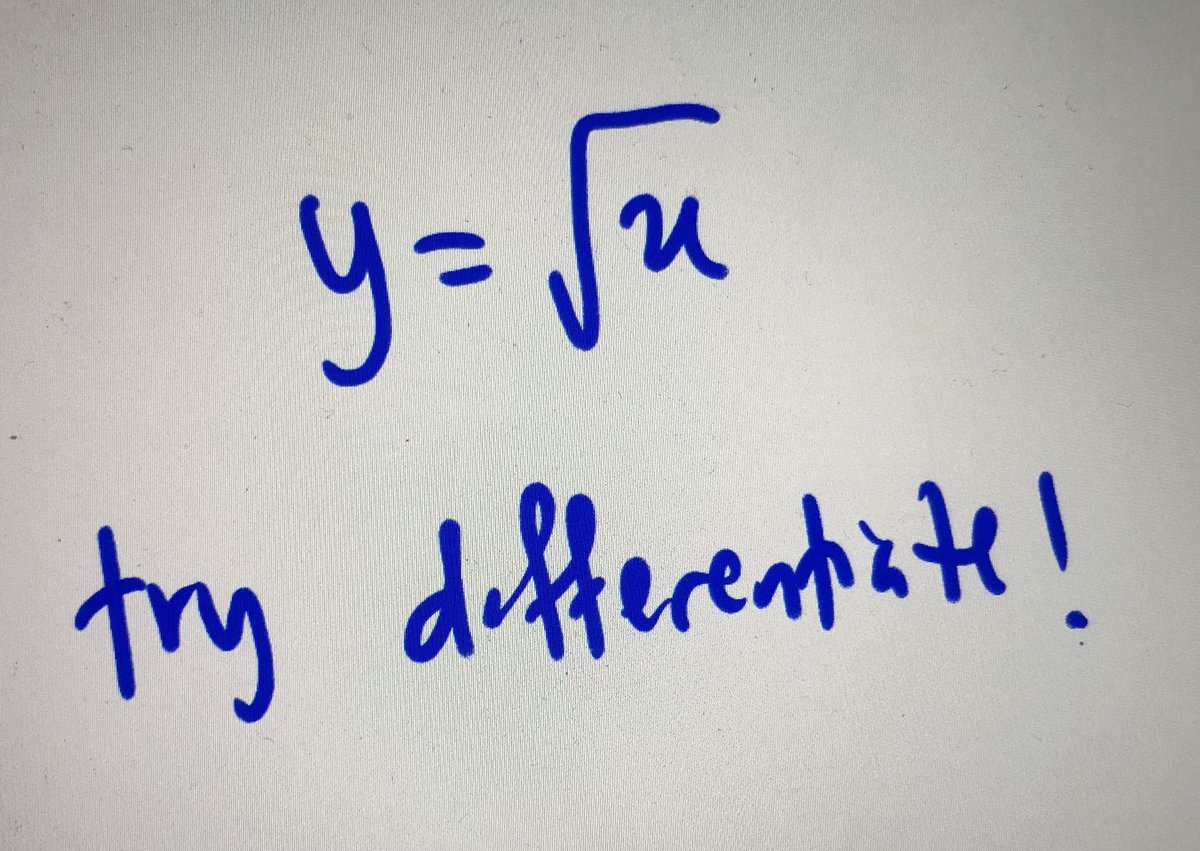 y = √x
try differentiate!